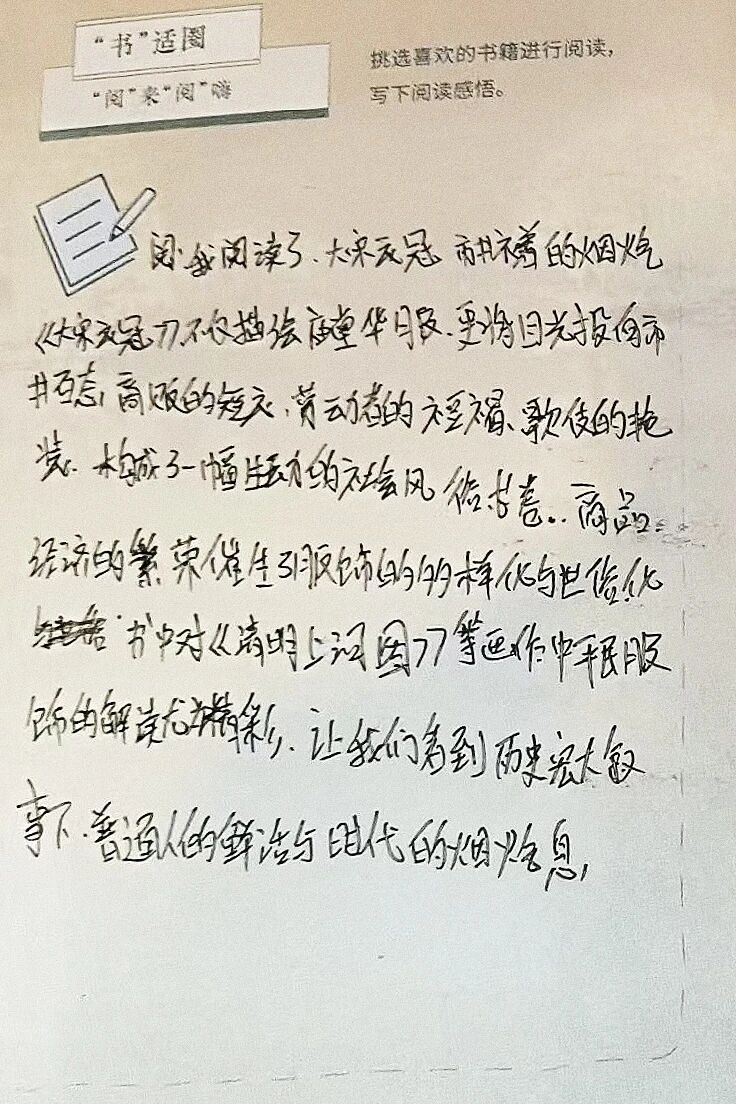 “书”适圈
“阅”来“阅”嗨
挑选喜欢的书籍进行阅读，
写下阅读感悟。
我阅读了、大宋衣冠 市井裙的烟火气
《大宋衣冠》不仅描绘庙堂华服、更将目光投向市
井百态，商贩的短衣、劳动者的短褐、歌伎的艳
装、构成了一幅生动的社会风俗长卷。商品
经济的繁荣催生了服饰的多样化与世俗化
书中对《清明上河图》等画作中平民服
饰的解读尤为精彩、让我们看到历史宏大叙
事下、普通人的鲜活与时代的烟火气息，